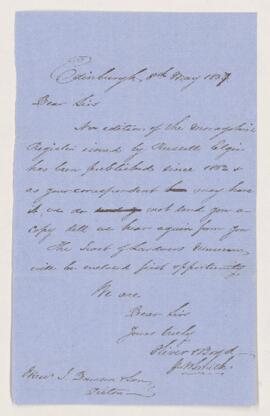 Edinburgh, 8th May 1857.
Dear Sirs
No edition of the Morayshire
Register issued by Russell Elgin
has been published since 1852 &
as your correspondent may have
it we do not send you a
copy till we hear again from you
The Scot of
will be enclosed first opportunity
We are
Dear Sirs
Yours truly
Oliver & Boyd
Messrs J. Dawson & Son
Pictou